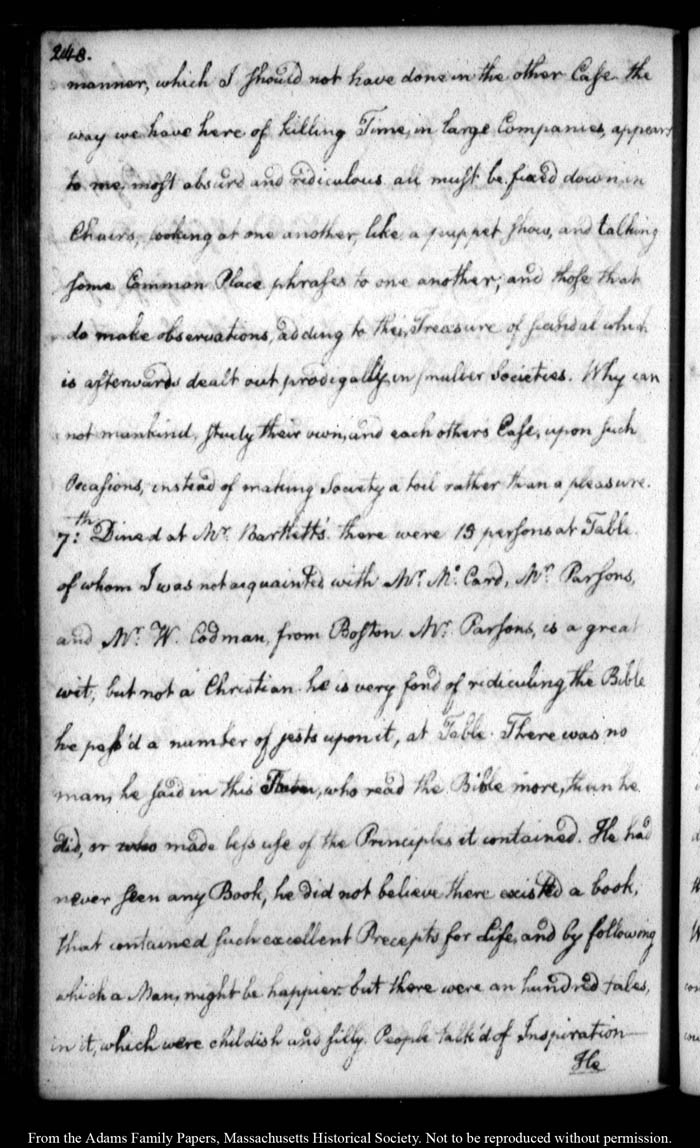 248.
manner, which I should not have done in the other Case. the
way we have here of killing Time, in large Companies, appears
to me, most absurd and ridiculous. all must be fixed down in
Chairs, looking at one another, like a puppet show, and talking
some Common Place phrases to one another; and those that
do make observations, adding to their Treasure of scandal which
is afterwards dealt out prodigally in smaller Societies. Why can
not mankind, study their own, and each others Ease, upon such
Occasions, instead of making Society a toil rather than a pleasure.
7:th Dined at Mr. Bartlett's. there were 13 persons at Table.
of whom I was not acquainted with Mr. Mc. Card, Mr. Parsons,
and Mr. W. Codman, from Boston. Mr. Parsons, is a great
wit, but not a Christian. he is very fond of ridiculing the Bible
he pass'd a number of jests upon it, at Table. There was no
man, he said in this, who read the Bible more, than he
did, or who made less use of the Principles it contained. He had
never seen any Book, he did not believe there existed a book,
that contained such excellent Precepts for Life, and by following
which a Man, might be happier. but there were an hundred tales,
in it, which were childish and silly. People talk'd of Inspiration—
He
From the Adams Family Papers, Massachusetts Historical Society. Not to be reproduced without permission.